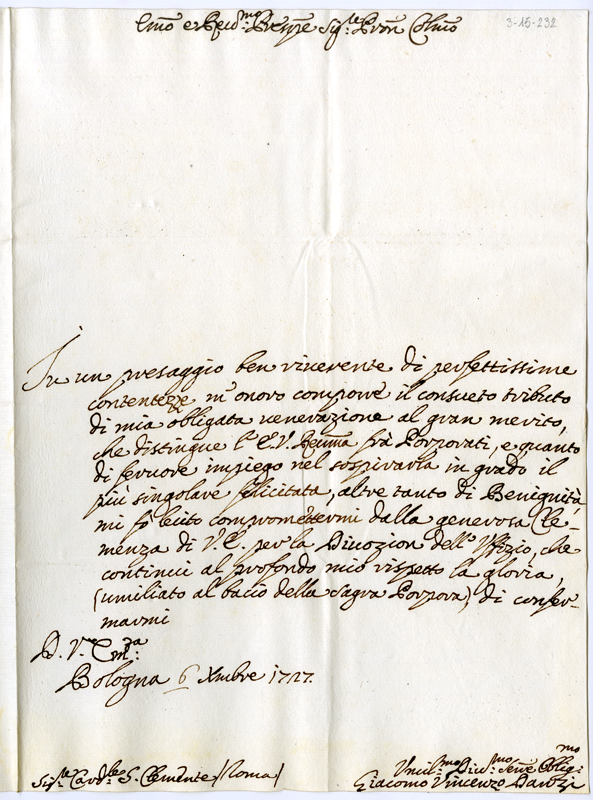 Emo e Reid.mo Prenpe Sig.re Pron Colmo
3-15-232
In un presaggio ben riverente di perfettissime
contentezze m'onoro comporre il consueto tributo
di mia obligata venerazione al gran merito,
che distingue l'E.V. Reuma frà Porporati, e quanto
di fervore impiego nel sospirarla in grado il
più singolare felicitata, altre tanto di Benignità
mi fò lecito compromettermi dalla generosa Cle-
menza di V.E. per la Divozion dell'Uffizio, che
continui al profondo mio rispetto la gloria,
(umiliato al bacio della Sagra Porpora) di confer-
marmi
D. V.ra Em.za
Bologna 6 Xmbre 1727.
Sig.re Card.le S. Clemente /Roma/
Umil.mo Div.mo Serve Oblig.mo
Giacomo Vincenzo